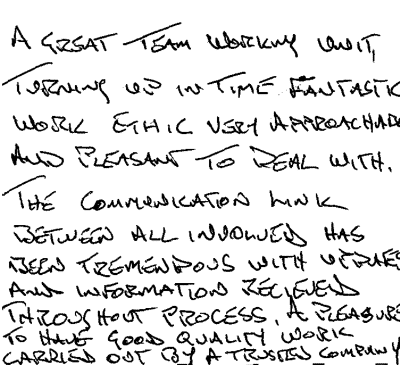 A GREAT TEAM WORKING UNIT,
TURNING UP IN TIME FANTASTIC
WORK ETHIC VERY APPROACHAB
AND PLEASANT TO DEAL WITH.
THE COMMUNICATION LINK
BETWEEN ALL INVOLVED HAS
BEEN TREMENDOUS WITH UPDATES
AND INFORMATION RECIEVED
THROUGHOUT PROCESS. A PLEASURE
TO HAVE GOOD QUALITY WORK
CARRIED OUT BY A TRUSTED COMPANY